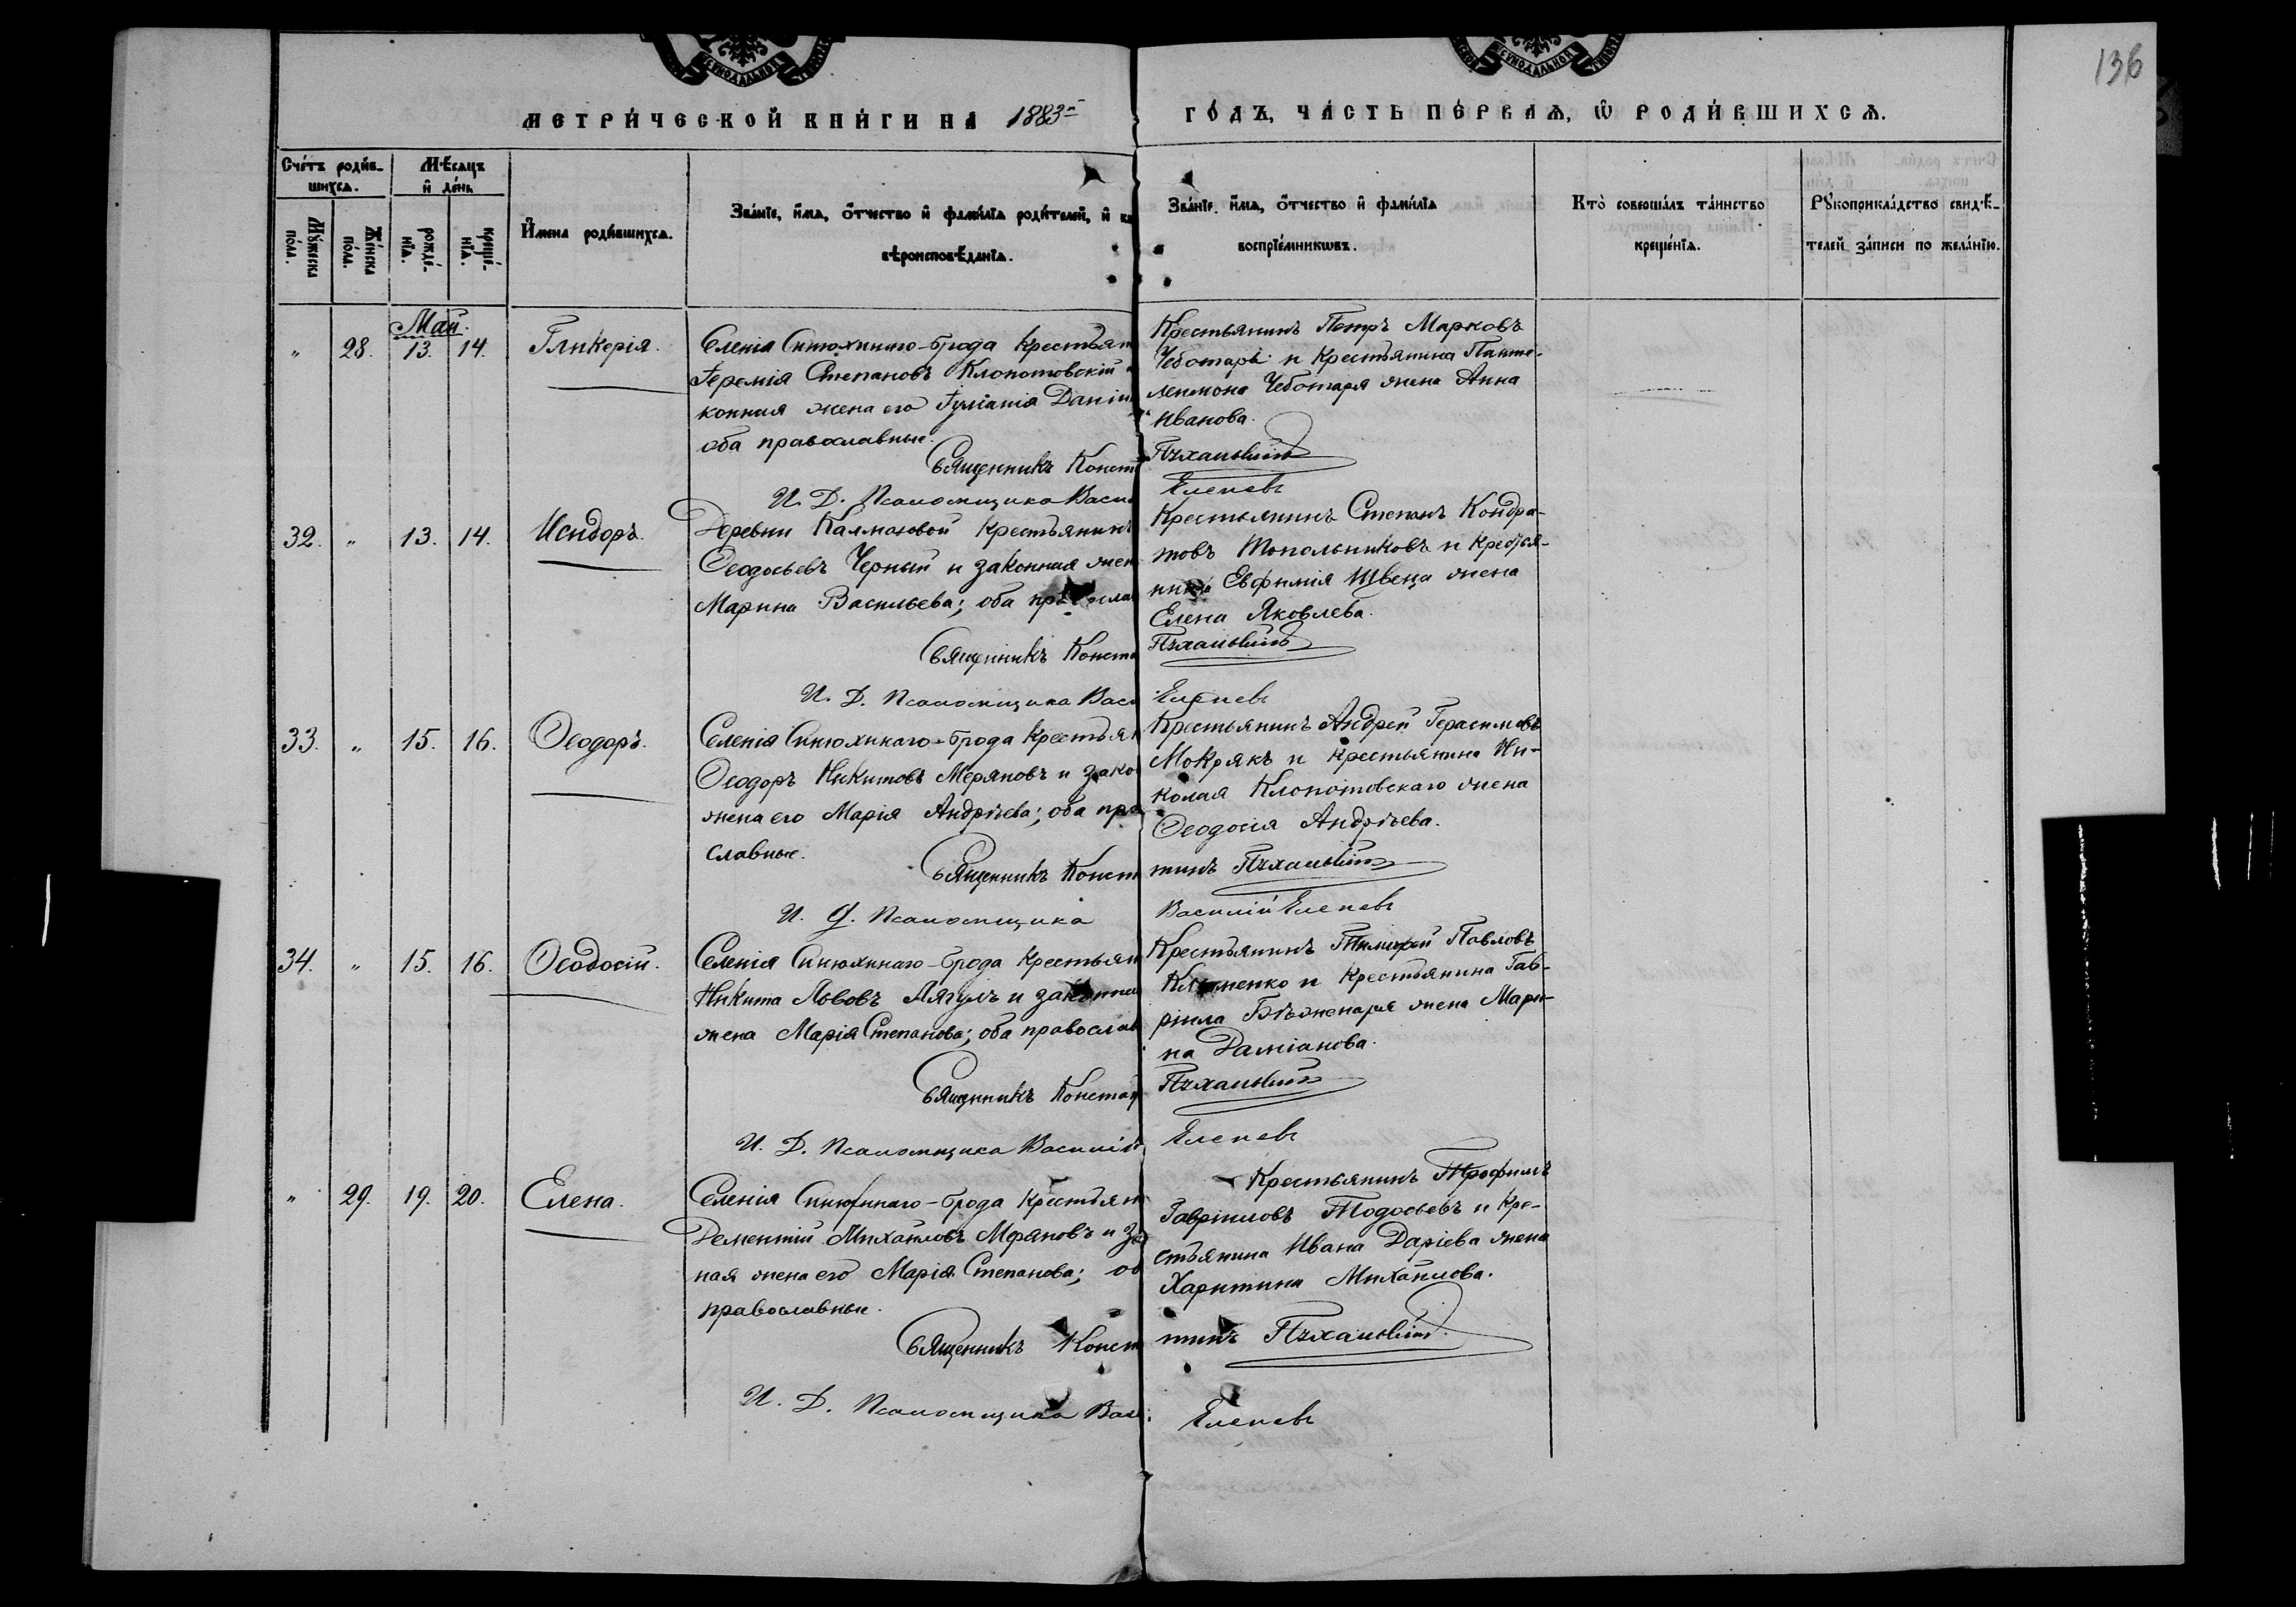 136
СѴНОДАЛЬНОЙ
СѴНОДАЛЬНОЙ
МЕТРИ́ЧЕСКОЙ КНИ́ГИ НА 1883 ГО́ДЪ, ЧА́СТЬ ПЕ́РВАѦ, Ѡ РОДИ́ВШИХСѦ.
Сче́тъ роди́в-
шихсѧ.
Мꙋ́жеска по́ла.
Же́нска по́ла.
Мѣ́сѧцъ
и҆ де́нь
рожде́-нїѧ.
креще́-нїѧ.
И҆́мена роди́вшихсѧ.
Зва́нїе, и҆́мѧ, ѻ҆́тчество и҆ фами́лїѧ роди́телей, и҆
вѣроисповѣ́данїѧ.
Зва́нїе, и҆́мѧ, ѻ҆́тчество и҆ фами́лїѧ
воспрїе́мникѡвъ.
Кто̀ соверша́лъ та́инство
креще́нїѧ.
Рꙋкоприкла́дство свидѣ́-
телей за́писи по жела́нїю.
Май.
" 28. 13. 14. Гликерія.
Селенія Синюхинаго-брода крестьян
Іеремія Степановъ Клопотовскій
конная жена его Іуліанія Даніи
оба православные.
Священникъ Конст
И. Д. Псаломщика Васи
Крестьянинъ Петръ Марковъ
Чеботарь и крестьянина Панте-
леимона Чеботаря жена Анна
Иванова.
Еленевъ
32. " 13. 14. Исидоръ.
Деревни Калмазовой крестьянинъ
Ѳеодосьевъ Черный и законная жен
Марина Васильева; оба православ
Священникъ Конста
И. Д. Псаломщика Васи
Крестьянинъ Степанъ Кондра-
товъ Топольниковъ и крестья-
нина Евфимія Швеца жена
Елена Яковлева.
Еленевъ
33. " 15. 16. Ѳеодоръ.
Селенія Синюхинаго-брода крестьян
Ѳеодоръ Никитовъ Меряновъ и зако
жена его Марія Андрѣева; оба пра
славные.
Священникъ Конст
И. Д. Псаломщика
Крестьянинъ Андрей Герасимовъ
Мокрякъ и крестьянина Ни-
колая Клопотовскаго жена
Ѳеодосія Андрѣева.
тинъ
Василій Еленевъ
34. " 15. 16. Ѳеодосій.
Селенія Синюхинаго-брода крестьян
Никита Лововъ Лягулъ и законная
жена Марія Степанова; оба православ
Священникъ Констан
И. Д. Псаломщика Василій
Крестьянинъ Тимоѳей Павловъ
Клименко и крестьянина Гав-
ріила Бѣженаря жена Мари-
на Даміанова.
Еленевъ
" 29. 19. 20. Елена.
Селенія Синюхинаго-брода крестьян
Дементій Михаиловъ Меряновъ и за
ная жена его Марія Степанова; об
православные.
Священникъ Конст
И. Д. Псаломщика Васи
Крестьянинъ Трофимъ
Гавріиловъ Тодосьевъ и кре-
стьянина Ивана Даріева жена
Харитина Михаилова.
тинъ
Еленевъ